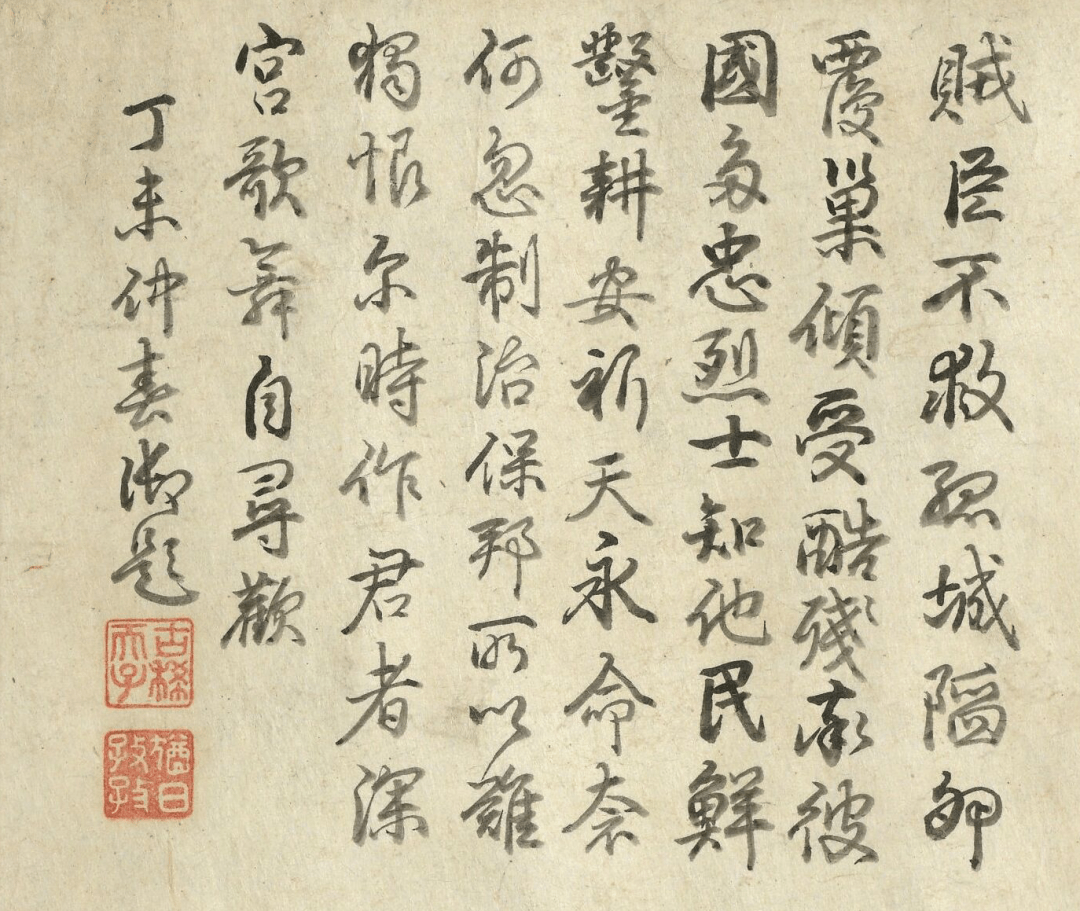 賊臣不救孤城陷卵
覆巢傾受酷殘率彼
國多忠烈士知他民鮮
鑿耕安祈天永命奈
何忽制治保邦所以難
獨恨尔時作君者深
宮歌舞自尋歡
丁未仲春御題
古稀天子
猶日孜孜